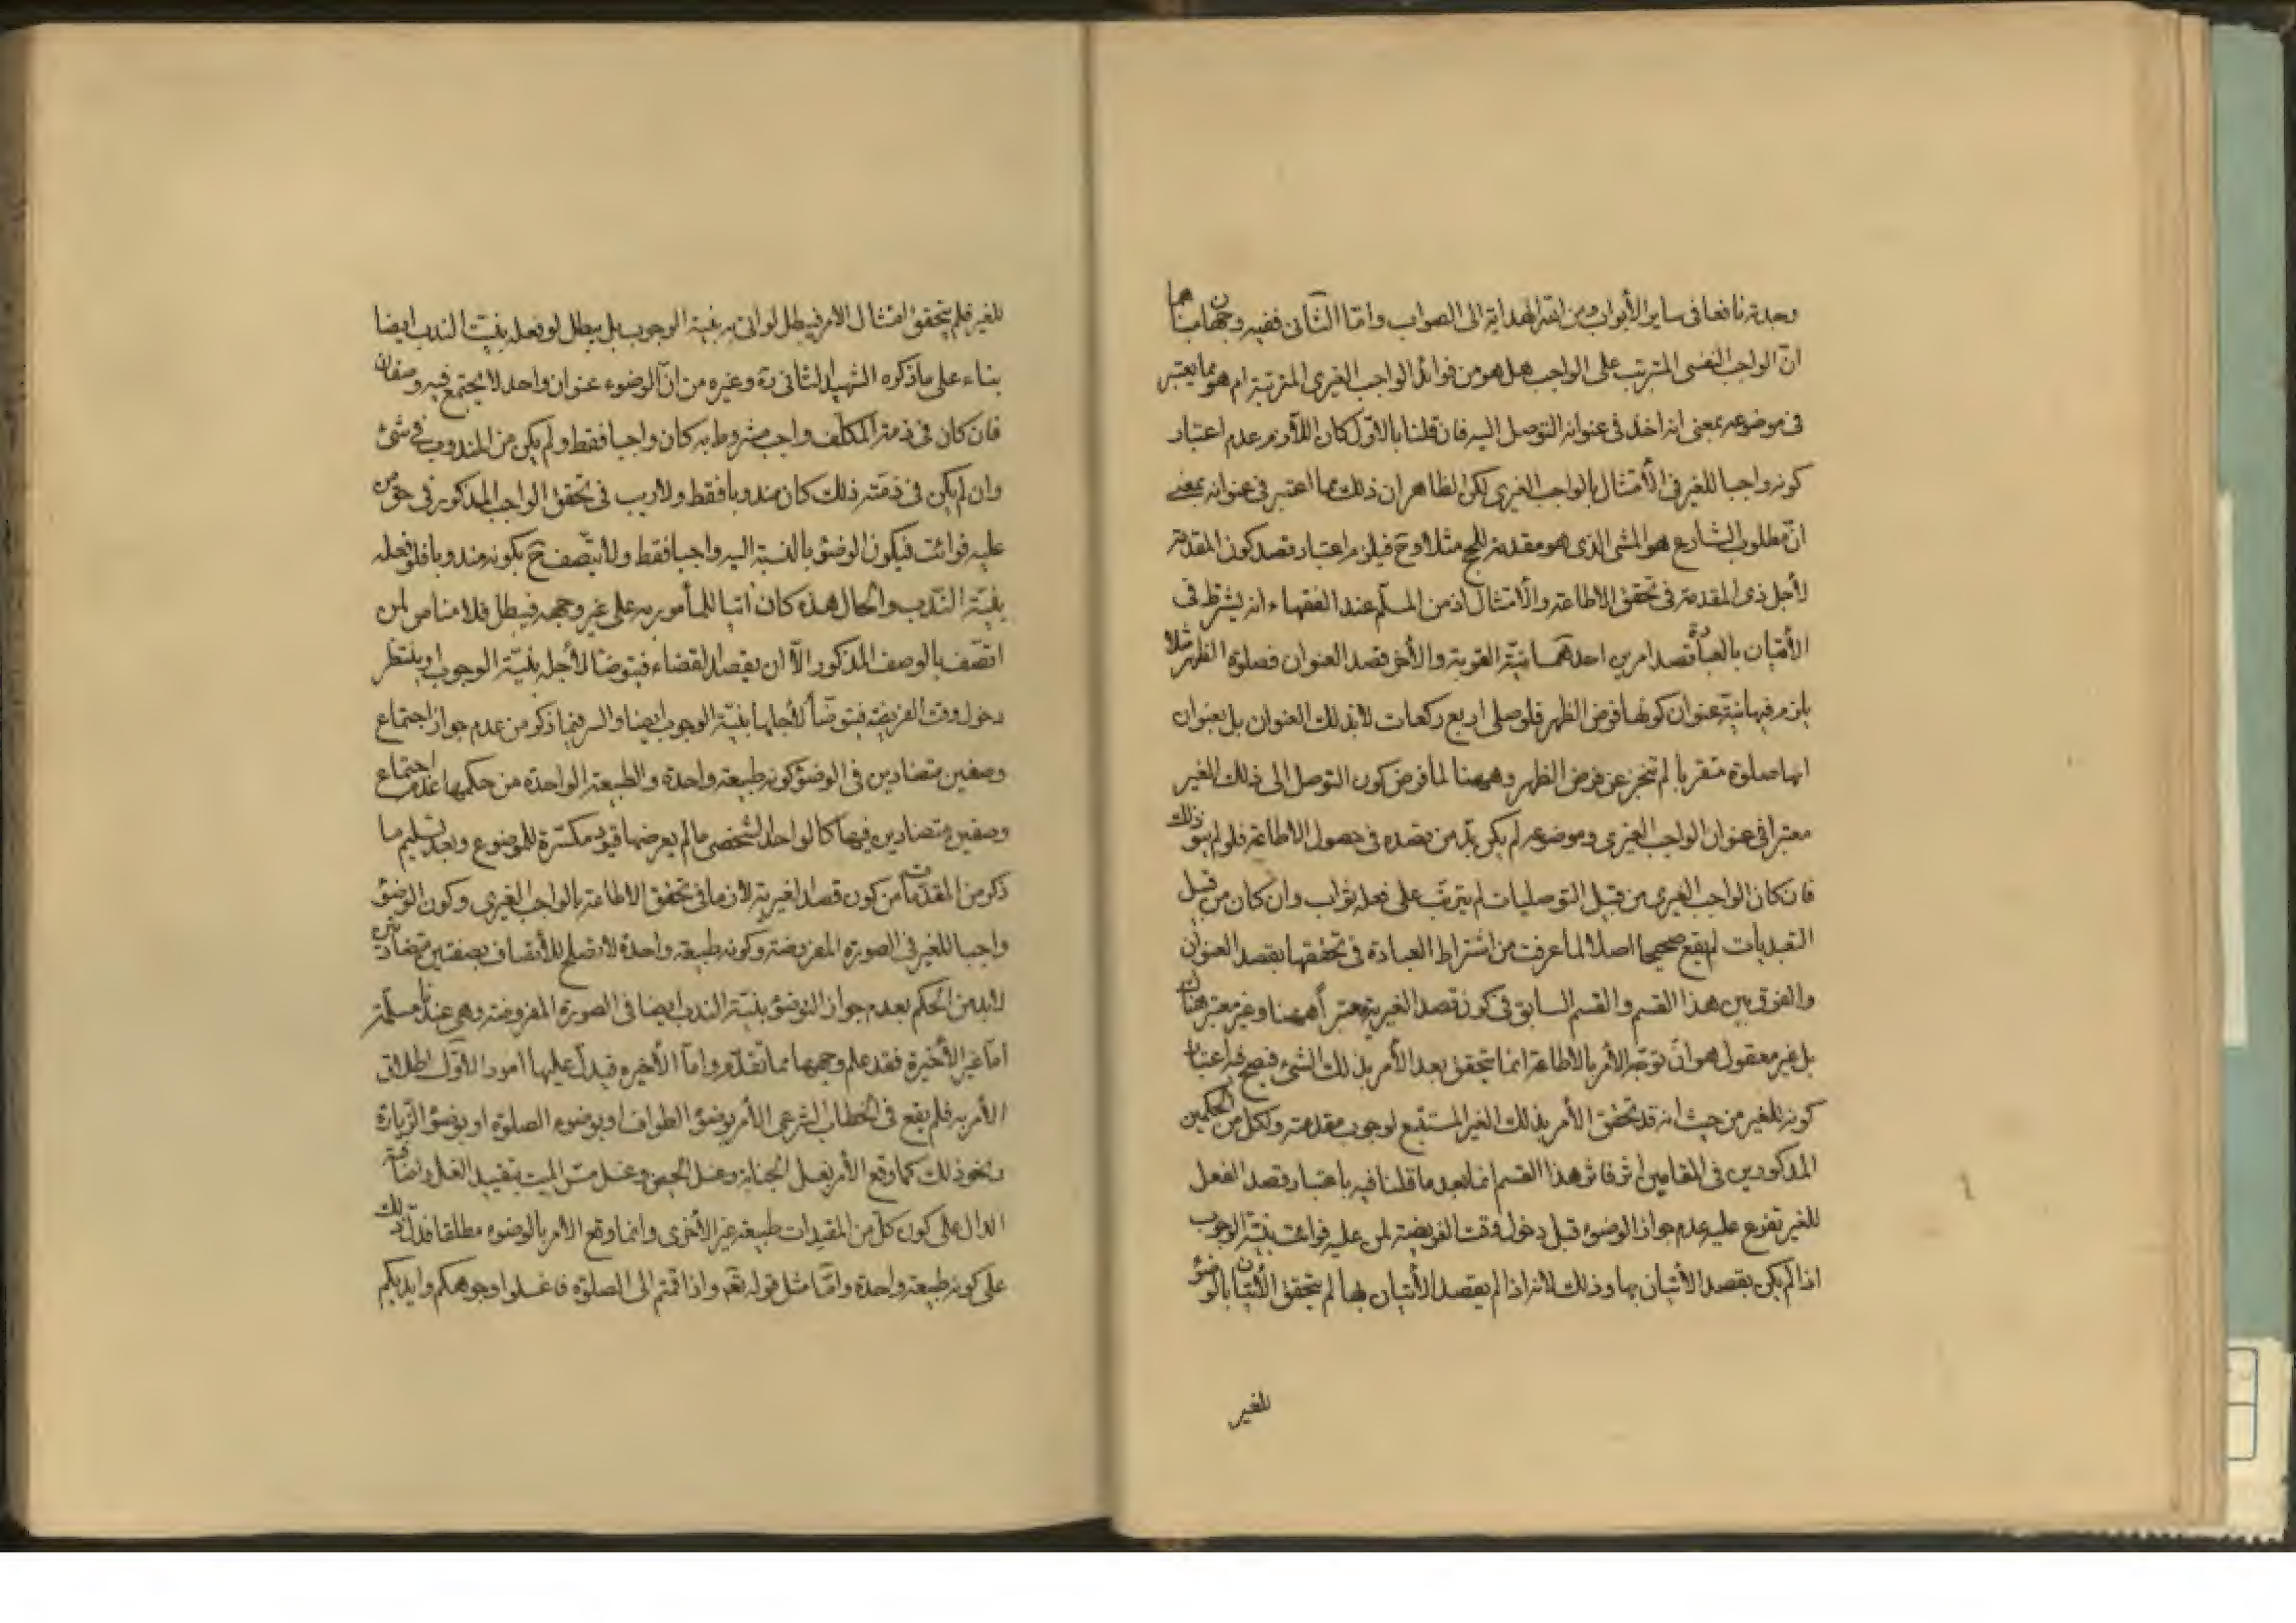 وجدته نافعا فى ساير الأبواب ومن الله الهداية الى الصواب وامّا الثّانى ففيه وجهان مبناهما
انّ الواجب النفسى المترتب على الواجب هل هو من فوائد الواجب الغيرى المترتبة ام هو مما يعتبر
فى موضوعه بمعنى انه اخذ فى عنوانه التوصل اليه فان قلنا بالاوّل كان اللّازم عدم اعتبار
كونه واجبا للغير فى الأمتثال بالواجب الغيرى لكن الظاهر ان ذلك مما اعتبر فى عنوانه بمعنى
انّ مطلوب الشارع هو المشى الذى هو مقدمة للحج مثلا وح فيلزم اعتبار قصد كون المقدمة
لأجل ذى المقدمة فى تحقق الاطاعة والأمتثال اذ من المسلّم عند الفقهاء انه يشترط فى
الأتيان بالعبادة قصد امرين احدهما نيّة القربة والأخر قصد العنوان فصلوة الظهر مثلا
يلزم فيها نيّة عنوان كونها فرض الظهر فلو صلى اربع ركعات لا بذلك العنوان بل بعنوان
انها صلوة متقربا لم تجز عن فرض الظهر وههنا لما فرض كون التوصل الى ذلك الغير
معتبرا فى عنوان الواجب الغيرى وموضوعه لم يكن بدّ من قصده فى حصول الاطاعة فلو لم ينو ذلك
فان كان الواجب الغيرى من قبيل التوصليات لم يترتب على فعله ثواب وان كان من قبيل
التعبديات لم يقع صحيحا اصلا لما عرفت من اشتراط العبادة فى تحققها بقصد العنوان
والفرق بين هذا القسم والقسم السابق فى كون قصد الغيرية معتبراً ههنا وغير معتبر هناك
بل غير معقول هو انّ توجّه الأمر بالاطاعة انما يتحقق بعد الأمر بذلك الشىء فيصح فيه اعتبار
كونه للغير من حيث انه قد تحقق الأمر بذلك الغير المستتبع لوجوب مقدمته ولكل من الحكمين
المذكورين فى المقامين اثر فاثر هذا القسم انما بعد ما قلنا فيه باعتبار قصد الفعل
للغير تفرع عليه عدم جواز الوضوء قبل دخول وقت الفريضة لمن عليه فوائت بنيّة الوجوب
اذا لم يكن بقصد الأتيان بها وذلك لانه اذا لم يقصد الأتيان بها لم يتحقق الأتيان بالوضوء
للغير
للغير فلم يتحقق امتثال الامر فيبطل لو اتى به بنيّة الوجوب بل يبطل لو فعله بنيّت الندب ايضا
بناء على ما ذكره الشهيد الثانى ره وغيره من انّ الوضوء عنوان واحد لا يجتمع فيه وصفان
فان كان فى ذمة المكلّف واجب مشروط به كان واجبا فقط ولم يكن من المندوب فى شئ
وان لم يكن فى ذمته ذلك كان مندوبا فقط ولا ريب فى تحقق الواجب المذكور فى حق من
عليه فوائت فيكون الوضوء بالنسبة اليه واجبا فقط ولا يتّصف ح بكونه مندوبا فلو فعله
بنيّة النّدب والحال هذه كان اتيا للمأمور به على غير وجهه فيبطل فلا مناص لمن
اتصّف بالوصف المذكور الّا ان يقصد القضاء فيتوضّأ لأجله بنيّة الوجوب او ينتظر
دخول وقت الفريضة فيتوضّأ لأجلها بنيّة الوجوب ايضا والسر فيما ذكر من عدم جواز اجتماع
وصفين متضادين فى الوضوء كونه طبيعة واحدة والطبيعة الواحدة من حكمها عدم اجتماع
وصفين متضادين فيها كالواحد الشخصى ما لم يعرضها قيود مكثرة للموضوع وبعد تسليم ما
ذكر من المقدّمات من كون قصد الغيرية لازما فى تحقق الاطاعة بالواجب الغيرى وكون الوضوء
واجبا للغير فى الصورة المفروضة وكونه طبيعة واحدة لا تصلح للأتصاف بصفتين متضادتين
لابد من الحكم بعدم جواز التوضؤ بنيّة الندب ايضا فى الصورة المفروضة وهى عندنا مسلّمة
امّا غير الأخيرة فقد علم وجهها مما تقدّم وامّا الأخيرة فيدلّ عليها امور الاوّل اطلاق
الأمر به فلم يقع فى الخطاب الشرعى الأمر بوضوء الطواف او بوضوء الصلوة او بوضوء الزّيارة
ونحو ذلك كما وقع الأمر بغسل الجنابة وغسل الحيض وغسل مسّ الميت بتقييد الغسل واضافته
الدال على كون كلّ من المقيدات طبيعة غير الأخرى وانما وقع الأمر بالوضوء مطلقا فدلّ ذلك
على كونه طبيعة واحدة وامّا مثل قوله تعه واذا قمتم الى الصلوة فاغسلوا وجوهكم وايديكم